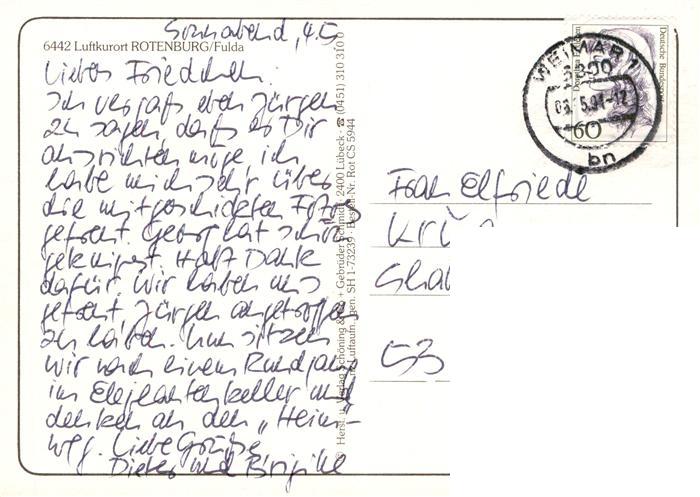 Sonnabend, 4.5
6442 Luftkurort ROTENBURG/Fulda
Liebes Friedchen.
Ich vergaß eben Jürgen
zu sagen, daß er Dir
ausrichten möge, ich
habe mich sehr über
die mitgeschickten Fotos
gefreut. Georg hat schön
geknipst. Hab Dank
dafür. Wir haben uns
gefreut, Jürgen angetroffen
zu haben. Nun sitzen
wir nach einem Rundgang
im Elephantenkeller und
denken an den „Heim-
weg. Liebe Grüße
Dieter und Brigitte
Herst. u. Verlag Schöning & Co + Gebrüder Schmidt · 2400 Lübeck · ☎ (0451) 310 310 0
Luftaufn. gen. SH 1-73239 · Bestell-Nr. Rot CS 5944
Deutsche Bundespost
60
WEIMAR 1
5300
bn
Frau Elfriede
Krü
53